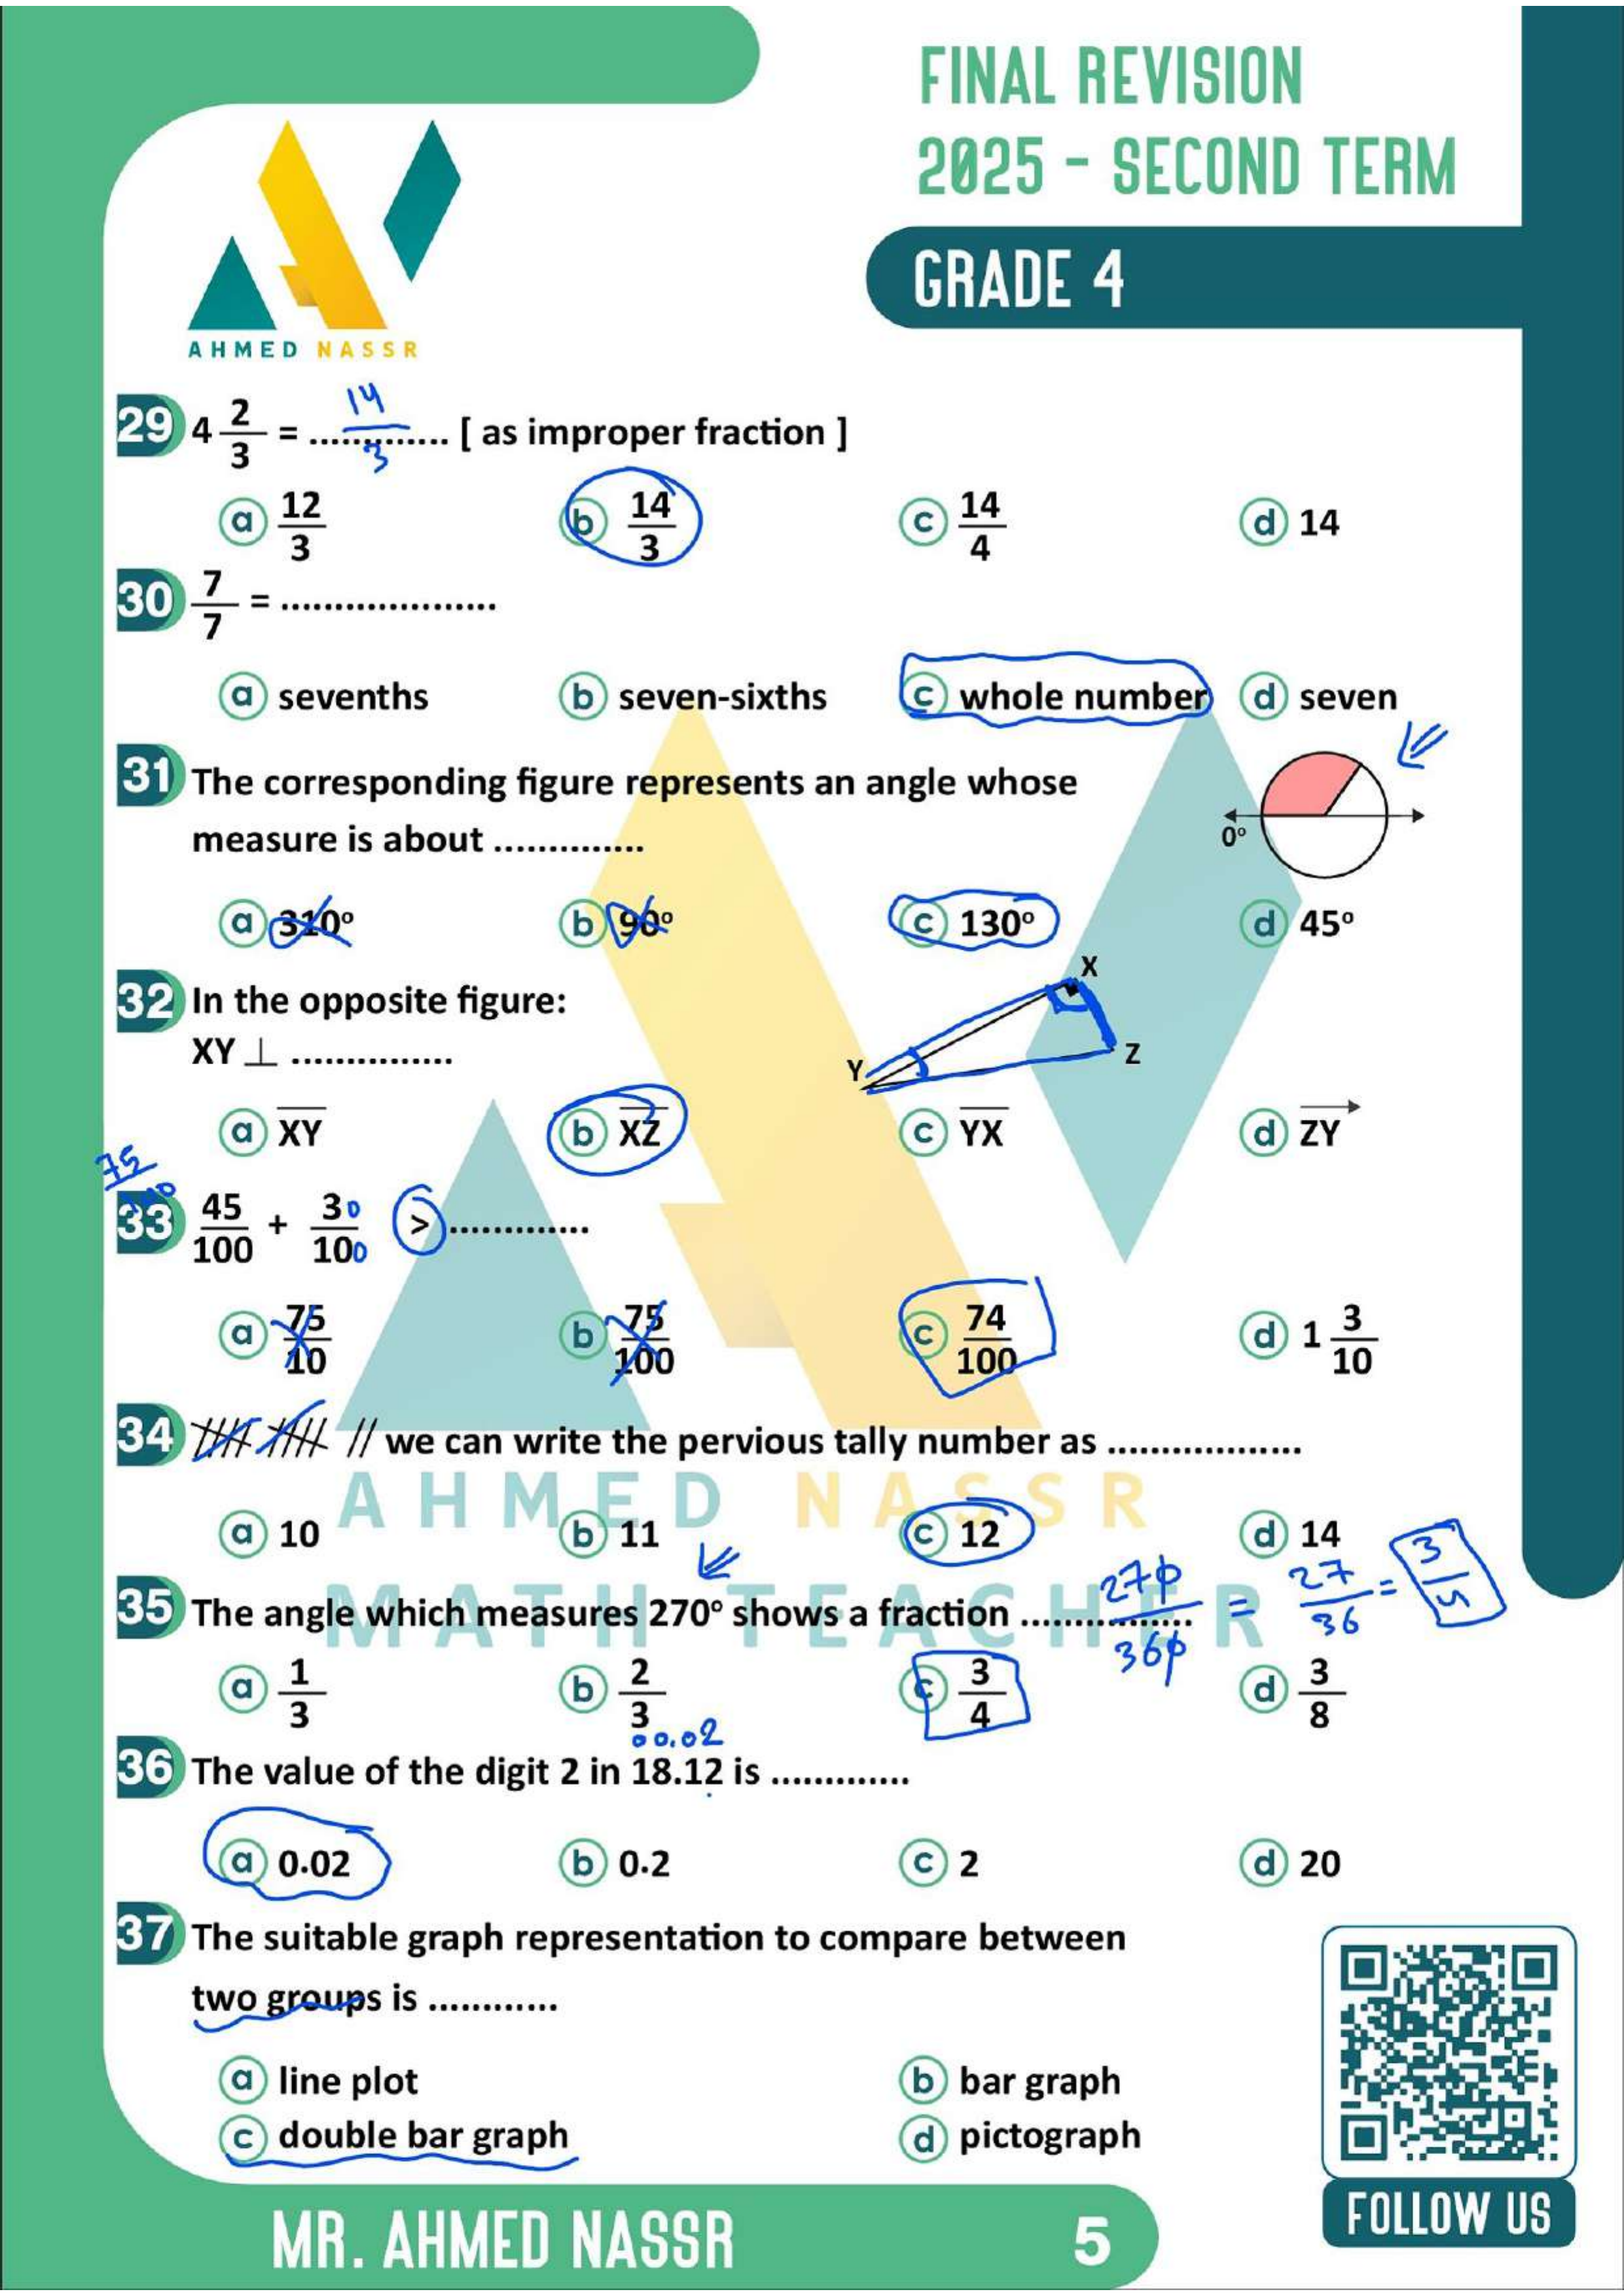 FINAL REVISION
2025 - SECOND TERM
GRADE 4
AHMED NASSR
29 4 2/3 = .............. [ as improper fraction ]
14/3
a 12/3 b 14/3 c 14/4 d 14
30 7/7 = ....................
a sevenths b seven-sixths c whole number d seven
31 The corresponding figure represents an angle whose
measure is about ..............
0°
a 310° b 90° c 130° d 45°
32 In the opposite figure:
XY ⊥ ...............
X
Y
Z
a XY b XZ c YX d ZY
75/100
33 45/100 + 30/100 > .............
a 75/10 b 75/100 c 74/100 d 1 3/10
34 //// //// // we can write the pervious tally number as ..................
AHMED NASSR
a 10 b 11 c 12 d 14
35 The angle which measures 270° shows a fraction ................
270/360 = 27/36 = 3/4
MATH TEACHER
a 1/3 b 2/3 c 3/4 d 3/8
00.02
36 The value of the digit 2 in 18.12 is .............
a 0.02 b 0.2 c 2 d 20
37 The suitable graph representation to compare between
two groups is ............
a line plot b bar graph
c double bar graph d pictograph
MR. AHMED NASSR 5
FOLLOW US